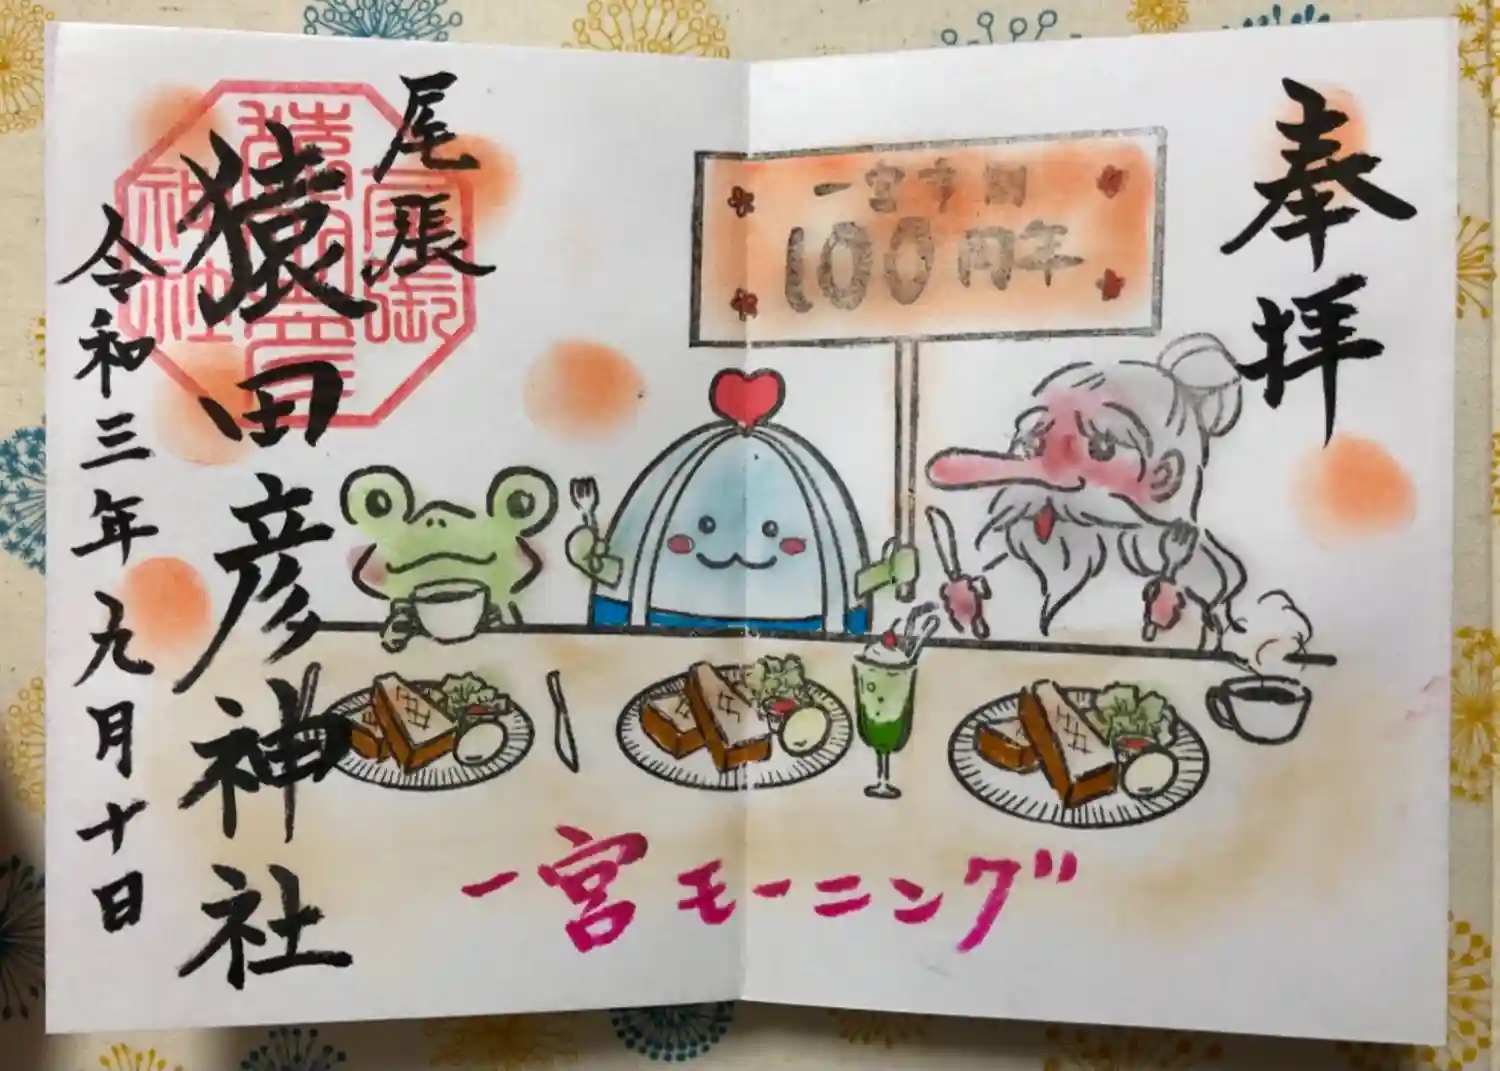 奉拝
一宮市制
100周年
尾張
猿田彦神社
令和三年九月十日
一宮モーニング